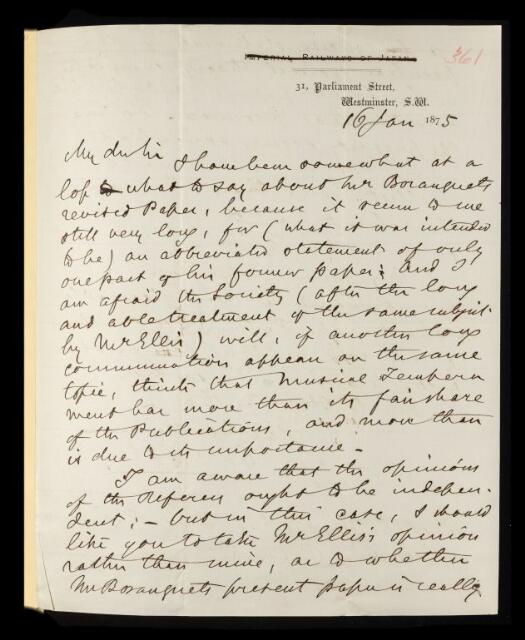 Imperial Railways of Japan
361
31, Parliament Street,
Westminster, S.W.
16 Jan 1875
My dear Sir
I have been somewhat at a
loss what to say about Mr Bosanquets
revised Paper, because it seems to me
still very long, for (what it was intended
to be) an abbreviated statement of only
one part of his former paper; And I
am afraid the Society (after the long
and able treatment of the same subject
by Mr Ellis) will, if another long
communication appear on the same
topic, think that Musical Tempera
ment has more than its fair share
of the Publications, and more than
is due to its importance -
I am aware that the opinions
of the Referees ought to be indepen-
dent; - but in this case, I should
like you to take Mr Ellis's opinion
rather than mine, as to whether
Mr Bosanquets present paper is really